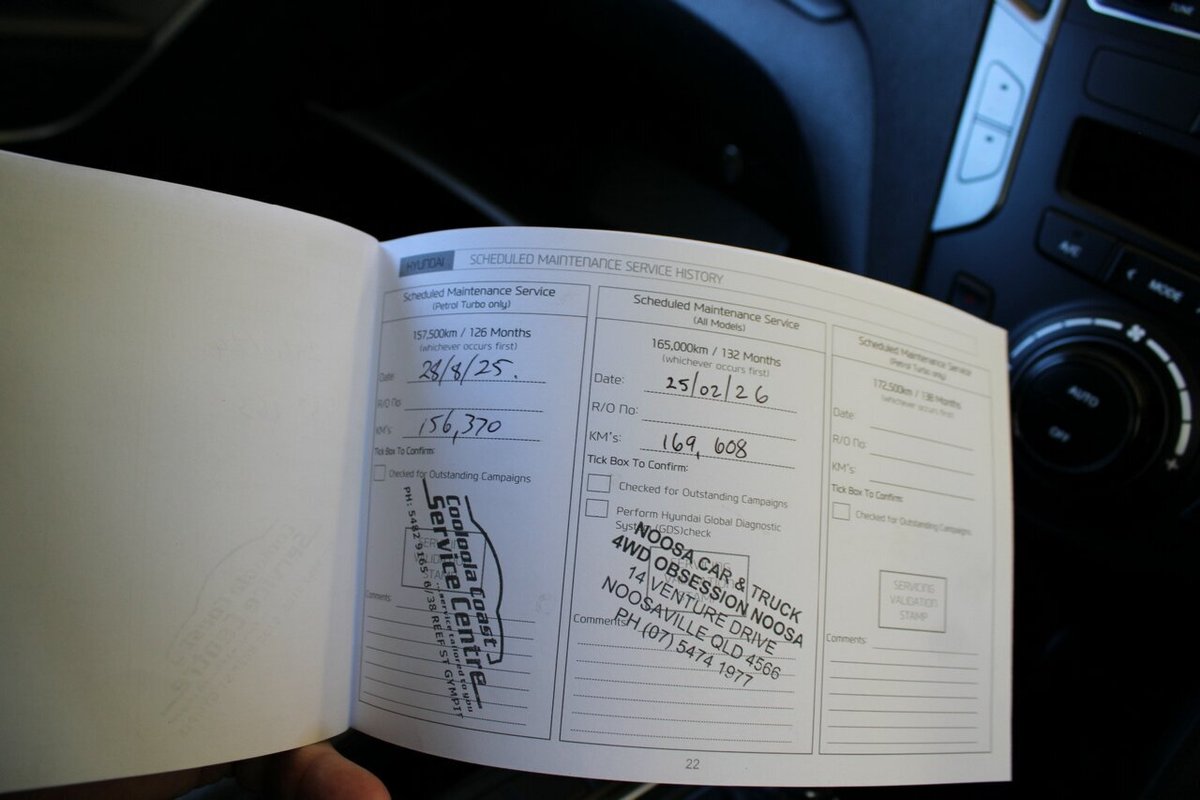 HYUNDAI SCHEDULED MAINTENANCE SERVICE HISTORY
Scheduled Maintenance Service
(Petrol Turbo only)
157,500km / 126 Months
(whichever occurs first)
Date: 28/8/25.
R/O No:
KM's: 156,370
Tick Box To Confirm:
Checked for Outstanding Campaigns
Cooloola Coast
Service Centre
"service tailored to you
PH: 5482 9165 6/38 REEF ST GYMPIE
Comments:
Scheduled Maintenance Service
(All Models)
165,000km / 132 Months
(whichever occurs first)
Date: 25/02/26
R/O No:
KM's: 169, 608
Tick Box To Confirm:
Checked for Outstanding Campaigns
Perform Hyundai Global Diagnostic
System (GDS)check
NOOSA CAR & TRUCK
4WD OBSESSION NOOSA
14 VENTURE DRIVE
NOOSAVILLE QLD 4566
PH (07) 5474 1977
Comments:
Scheduled Maintenance Service
(Petrol Turbo only)
172,500km / 138 Months
(whichever occurs first)
Date:
R/O No:
KM's:
Tick Box To Confirm:
Checked for Outstanding Campaigns
SERVICING
VALIDATION
STAMP
Comments:
22
TUNE
A/C
MODE
AUTO
OFF